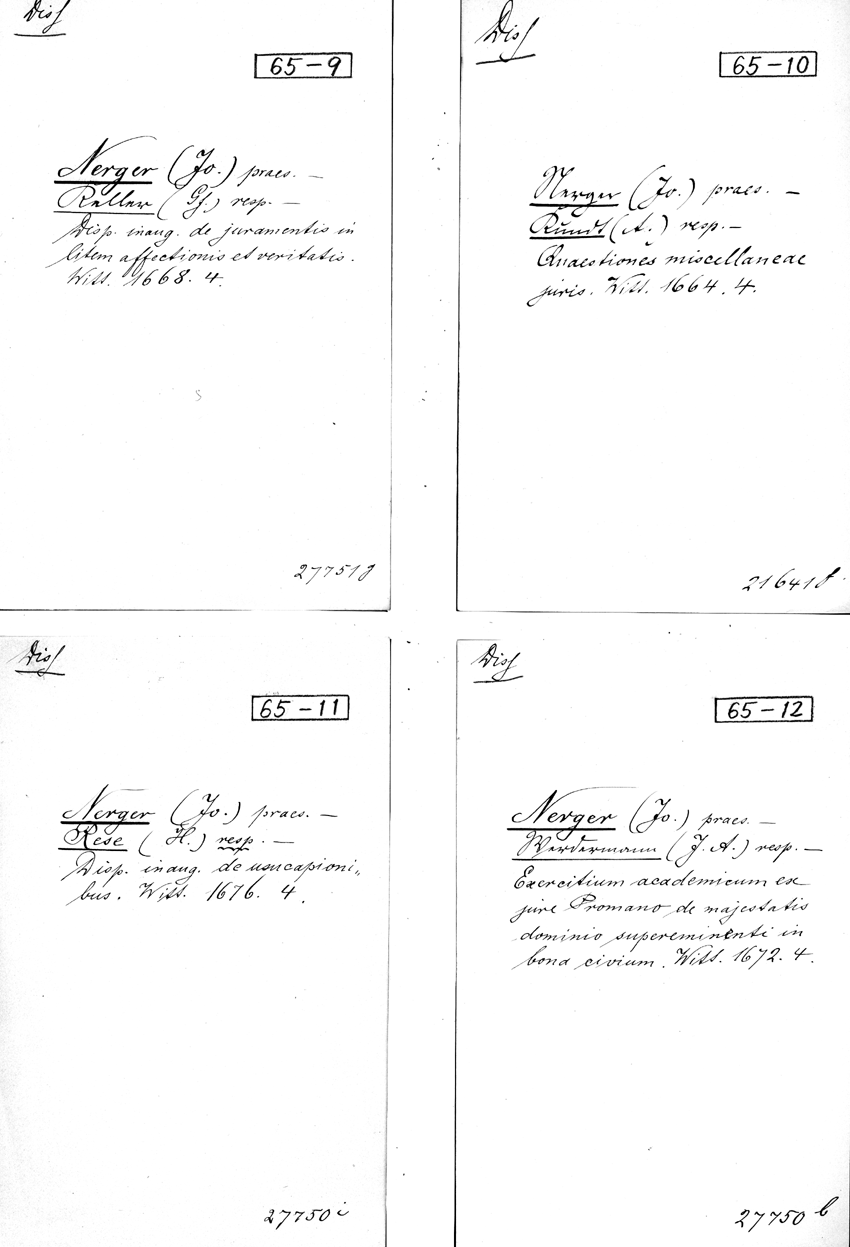 Diss
65-9
Nerger (Jo.) praes. —
Keller (Gf.) resp. —
Disp. inaug. de juramentis in
litem affectionis et veritatis.
Witt. 1668. 4.
27751g
Diss
65-10
Nerger (Jo.) praes. —
Kundt (A.) resp. —
Quaestiones miscellaneae
juris. Witt. 1664. 4.
21641f
Diss
65-11
Nerger (Jo.) praes. —
Rese (H.) resp. —
Disp. inaug. de usucapioni„
bus. Witt. 1676. 4.
27750i
Diss
65-12
Nerger (Jo.) praes. —
Werdermann (J. A.) resp. —
Exercitium academicum ex
jure Promano de majestatis
dominio supereminenti in
bona civium. Witt. 1672. 4.
27750b